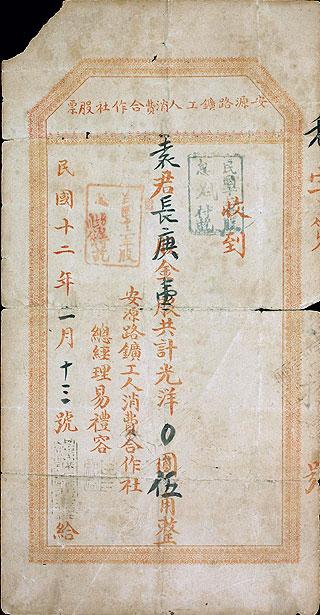 安源路鑛工人消費合作社股票
收到
袁君長庚股金壹股共計光洋0圓伍角整
安源路鑛工人消費合作社
總經理易禮容
民國十二年二月十三號給
號